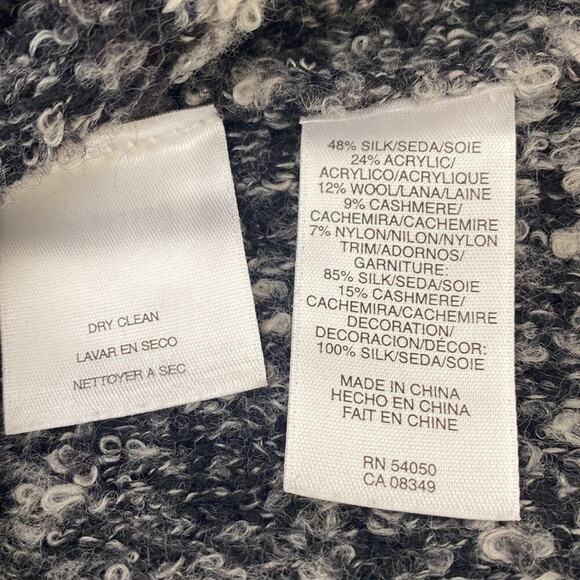 DRY CLEAN
LAVAR EN SECO
NETTOYER A SEC
48% SILK/SEDA/SOIE
24% ACRYLIC/
ACRYLICO/ACRYLIQUE
12% WOOL/LANA/LAINE
9% CASHMERE/
CACHEMIRA/CACHEMIRE
7% NYLON/NILON/NYLON
TRIM/ADORNOS/
GARNITURE:
85% SILK/SEDA/SOIE
15% CASHMERE/
CACHEMIRA/CACHEMIRE
DECORATION/
DECORACION/DÉCOR:
100% SILK/SEDA/SOIE
MADE IN CHINA
HECHO EN CHINA
FAIT EN CHINE
RN 54050
CA 08349